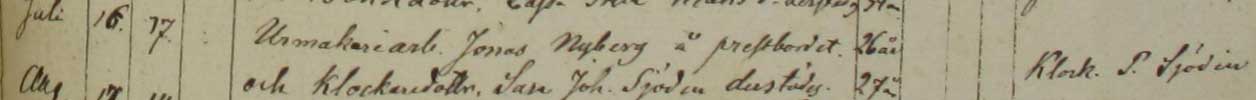 Juli 16. 17. Urmakeriarb. Jonas Nyberg å prestbordet. 26 år
och Klockaredottr. Sara Joh. Sjödin dersteds. 27 år Klock. P. Sjödin
Aug